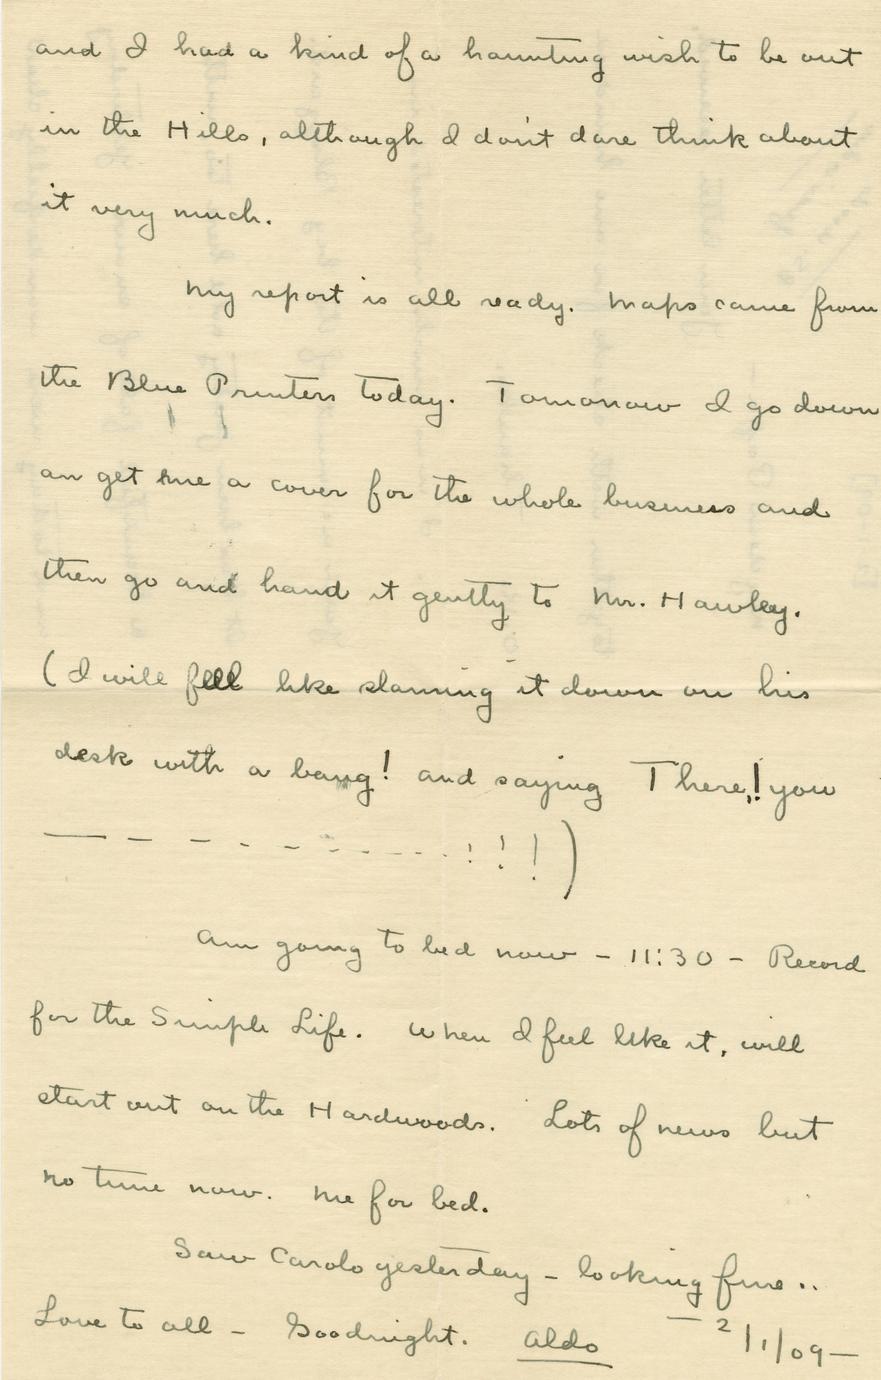 and I had a kind of a haunting wish to be out
in the Hills, although I don't dare think about
it very much.
My report is all ready. Maps came from
the Blue Printers today. Tomorrow I go down
an get me a cover for the whole business and
then go and hand it gently to Mr. Hawley.
(I will feel like slamming it down on his
desk with a bang! and saying There,! you
— – – - - - - - - - - - ! ! ! )
Am going to bed now – 11:30 – Record
for the Simple Life. When I feel like it, will
start out on the Hardwoods. Lots of news but
no time now. Me for bed.
Saw Carolo yesterday – looking fine ..
Love to all – Goodnight. Aldo — 2/1/09 —